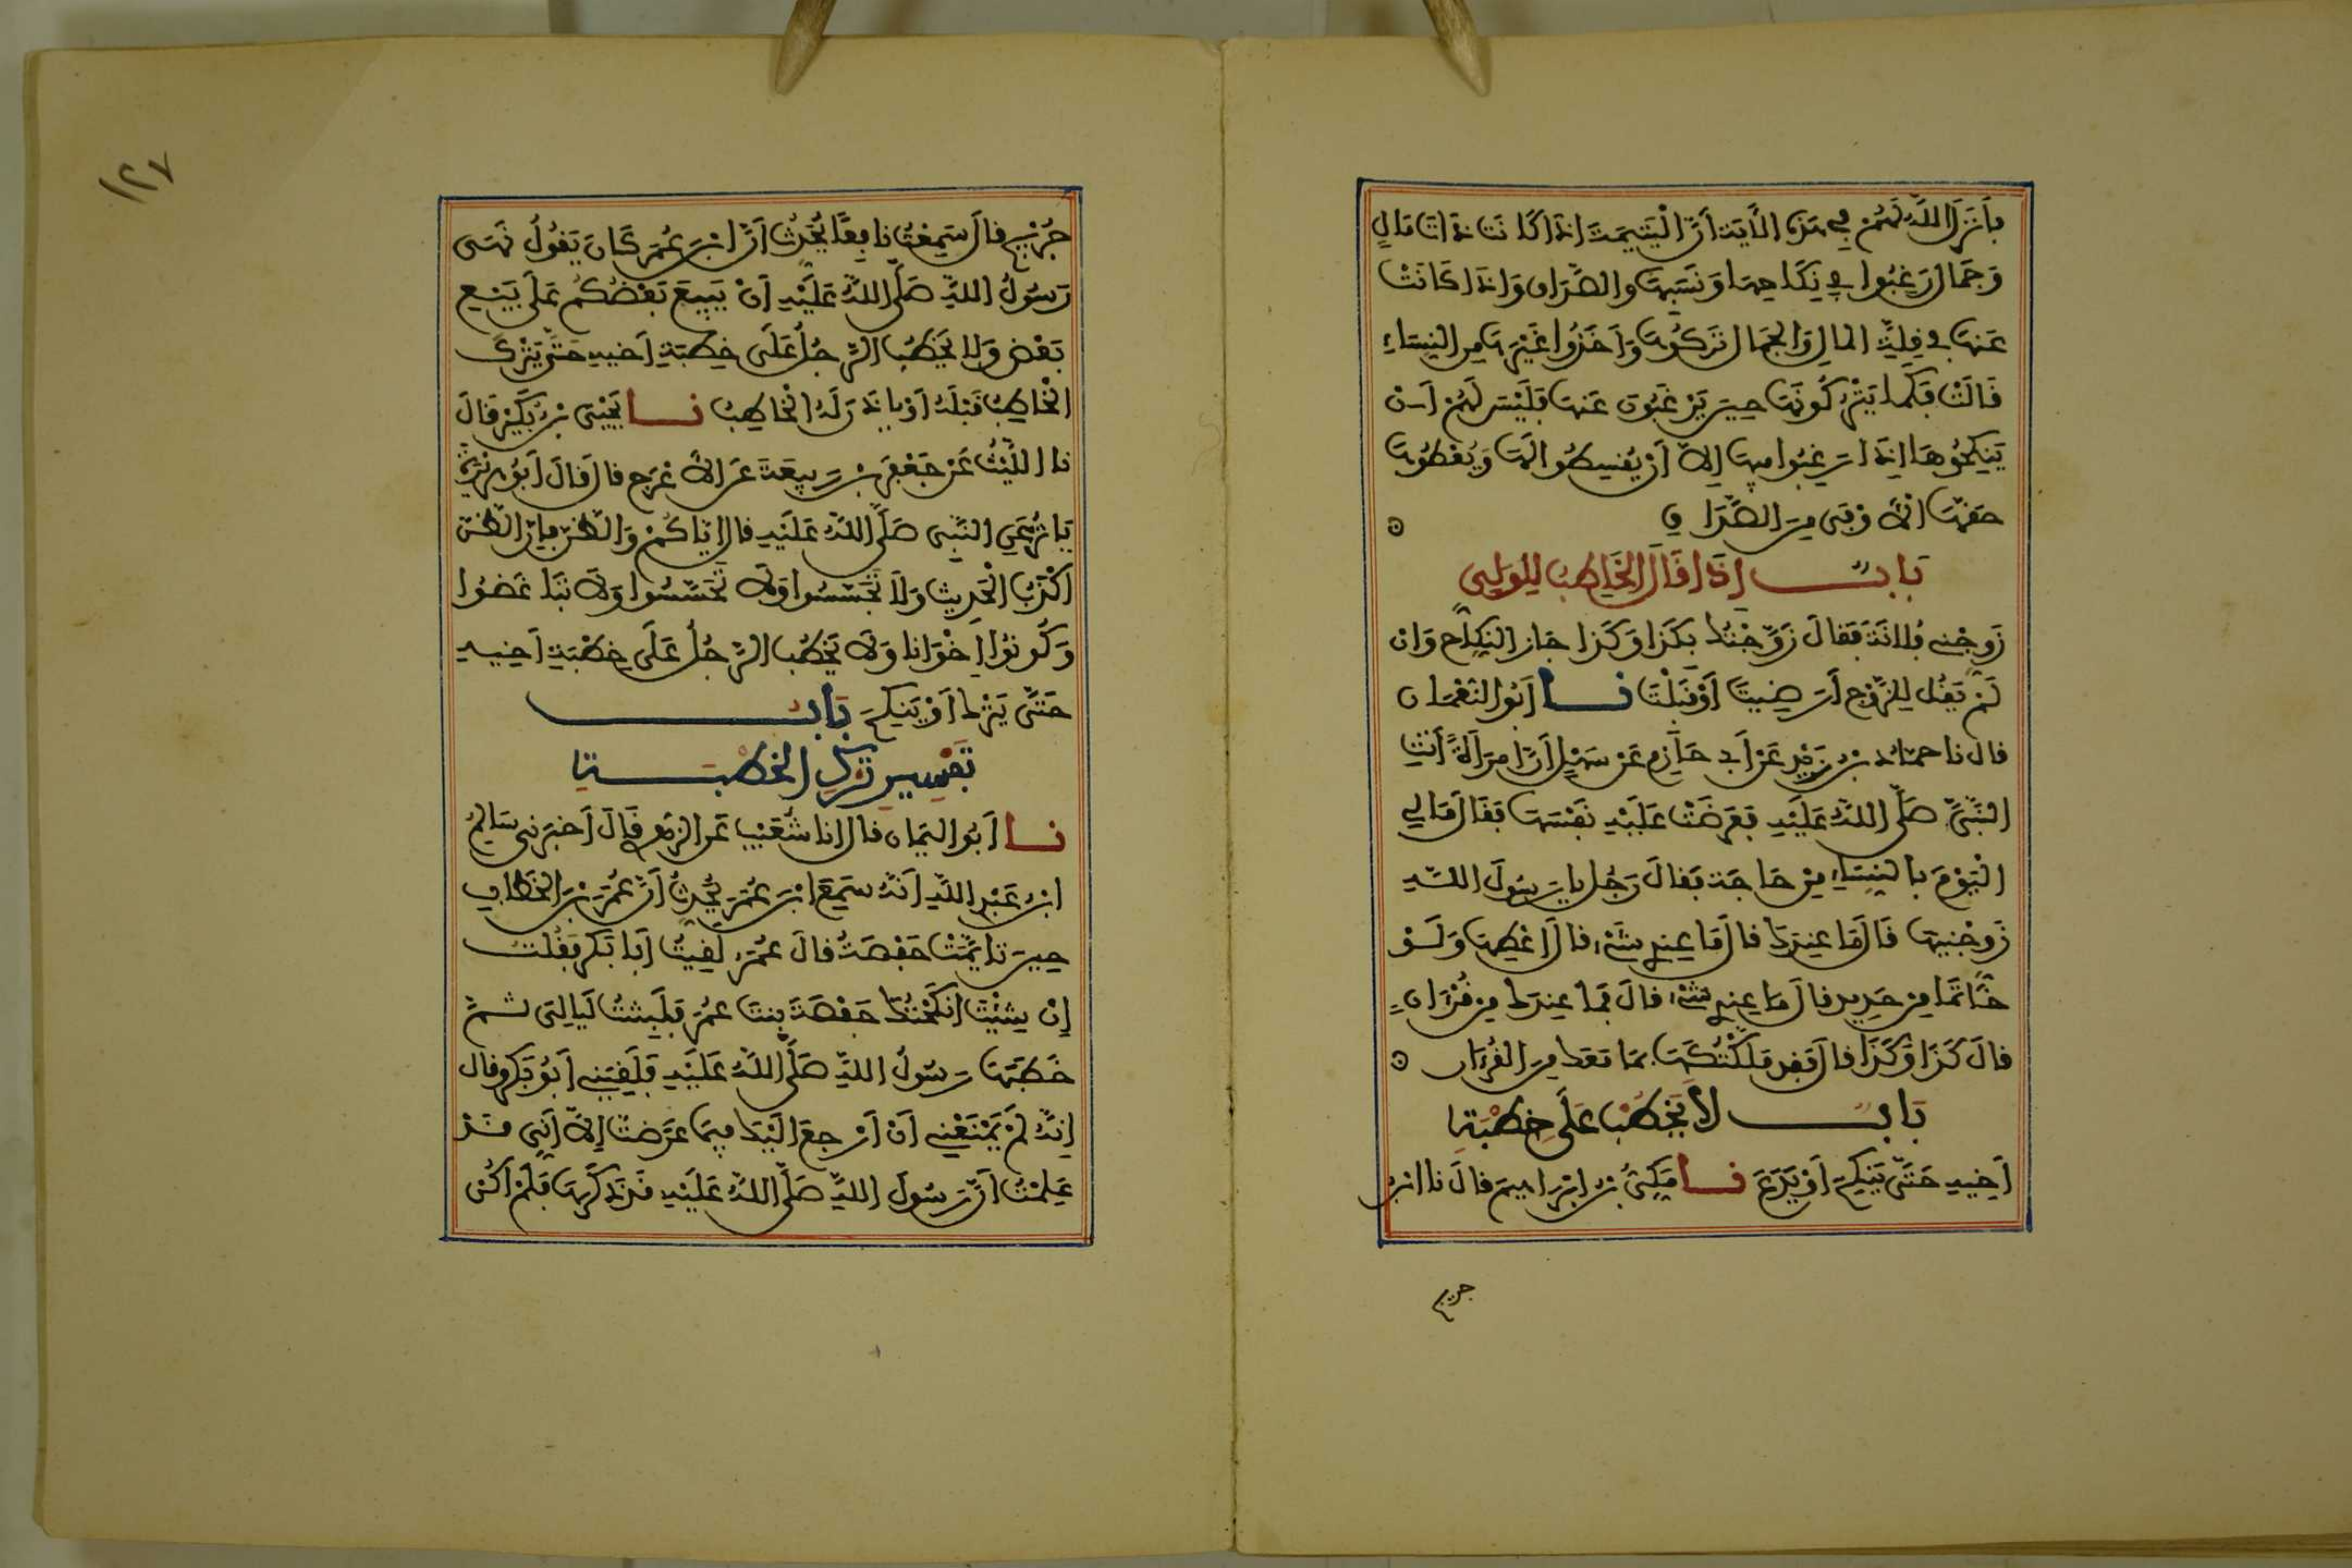 فأنزل الله لهم في هذه الآية أن اليتيمة إذا كانت ذات مال
وجمال رغبوا في نكاحها ونسبها والصداق وإذا كانت
عنها في قلة المال والجمال تركوها وأخذوا غيرها من النساء
قالت فكما يتركونها حين يرغبون عنها فليس لهم أن
ينكحوها إذا رغبوا فيها إلا أن يقسطوا لها ويعطوها
حقها الأوفى من الصداق
باب إذا قال الخاطب للولي
زوجني فلانة فقال زوجتك بكذا وكذا جاز النكاح وإن
لم يقل للزوج أرضيت أو قبلت نا أبو النعمان
قال نا حماد بن زيد عن أبي حازم عن سهل أن امرأة أتت
النبي صلى الله عليه فعرضت عليه نفسها فقال ما لي
اليوم بالنساء من حاجة فقال رجل يا رسول الله
زوجنيها قال ما عندك قال ما عندي شيء قال أعطها ولو
خاتما من حديد قال ما عندي شيء قال فما عندك من قرءان
قال كذا وكذا قال فقد ملكتكها بما معك من القرءان
باب لا يخطب على خطبة
أخيه حتى ينكح أو يدع نا مكي بن إبراهيم قال نا ابن
جريج
١٢٧
جريج قال سمعت نافعا يحدث أن ابن عمر كان يقول نهى
رسول الله صلى الله عليه أن يبيع بعضكم على بيع
بعض ولا يخطب الرجل على خطبة أخيه حتى يترك
الخاطب قبله أو ياذن له الخاطب نا يحيى بن بكير قال
نا الليث عن جعفر بن ربيعة عن الأعرج قال قال أبو هريرة
ياثر عن النبي صلى الله عليه قال إياكم والظن فإن الظن
أكذب الحديث ولا تجسسوا ولا تحسسوا ولا تباغضوا
وكونوا إخوانا ولا يخطب الرجل على خطبة أخيه
حتى يترك أو ينكح باب
تفسير ترك الخطبة
نا أبو اليمان قال أنا شعيب عن الزهري قال أخبرني سالم
ابن عبد الله أنه سمع ابن عمر يحدث أن عمر بن الخطاب
حين تأيمت حفصة قال عمر لقيت أبا بكر فقلت
إن شئت أنكحتك حفصة بنت عمر فلبثت ليالي ثم
خطبها رسول الله صلى الله عليه فلقيني أبو بكر وقال
إنه لم يمنعني أن أرجع إليك فيما عرضت إلا أني قد
علمت أن رسول الله صلى الله عليه قد ذكرها فلم أكن